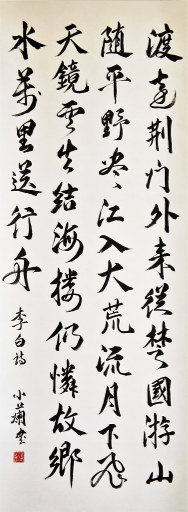 渡遠荆门外来從楚國游山
随平野尽江入大荒流月下飛
天鏡雲生結海楼仍憐故鄉
水萬里送行舟
李白詩
小